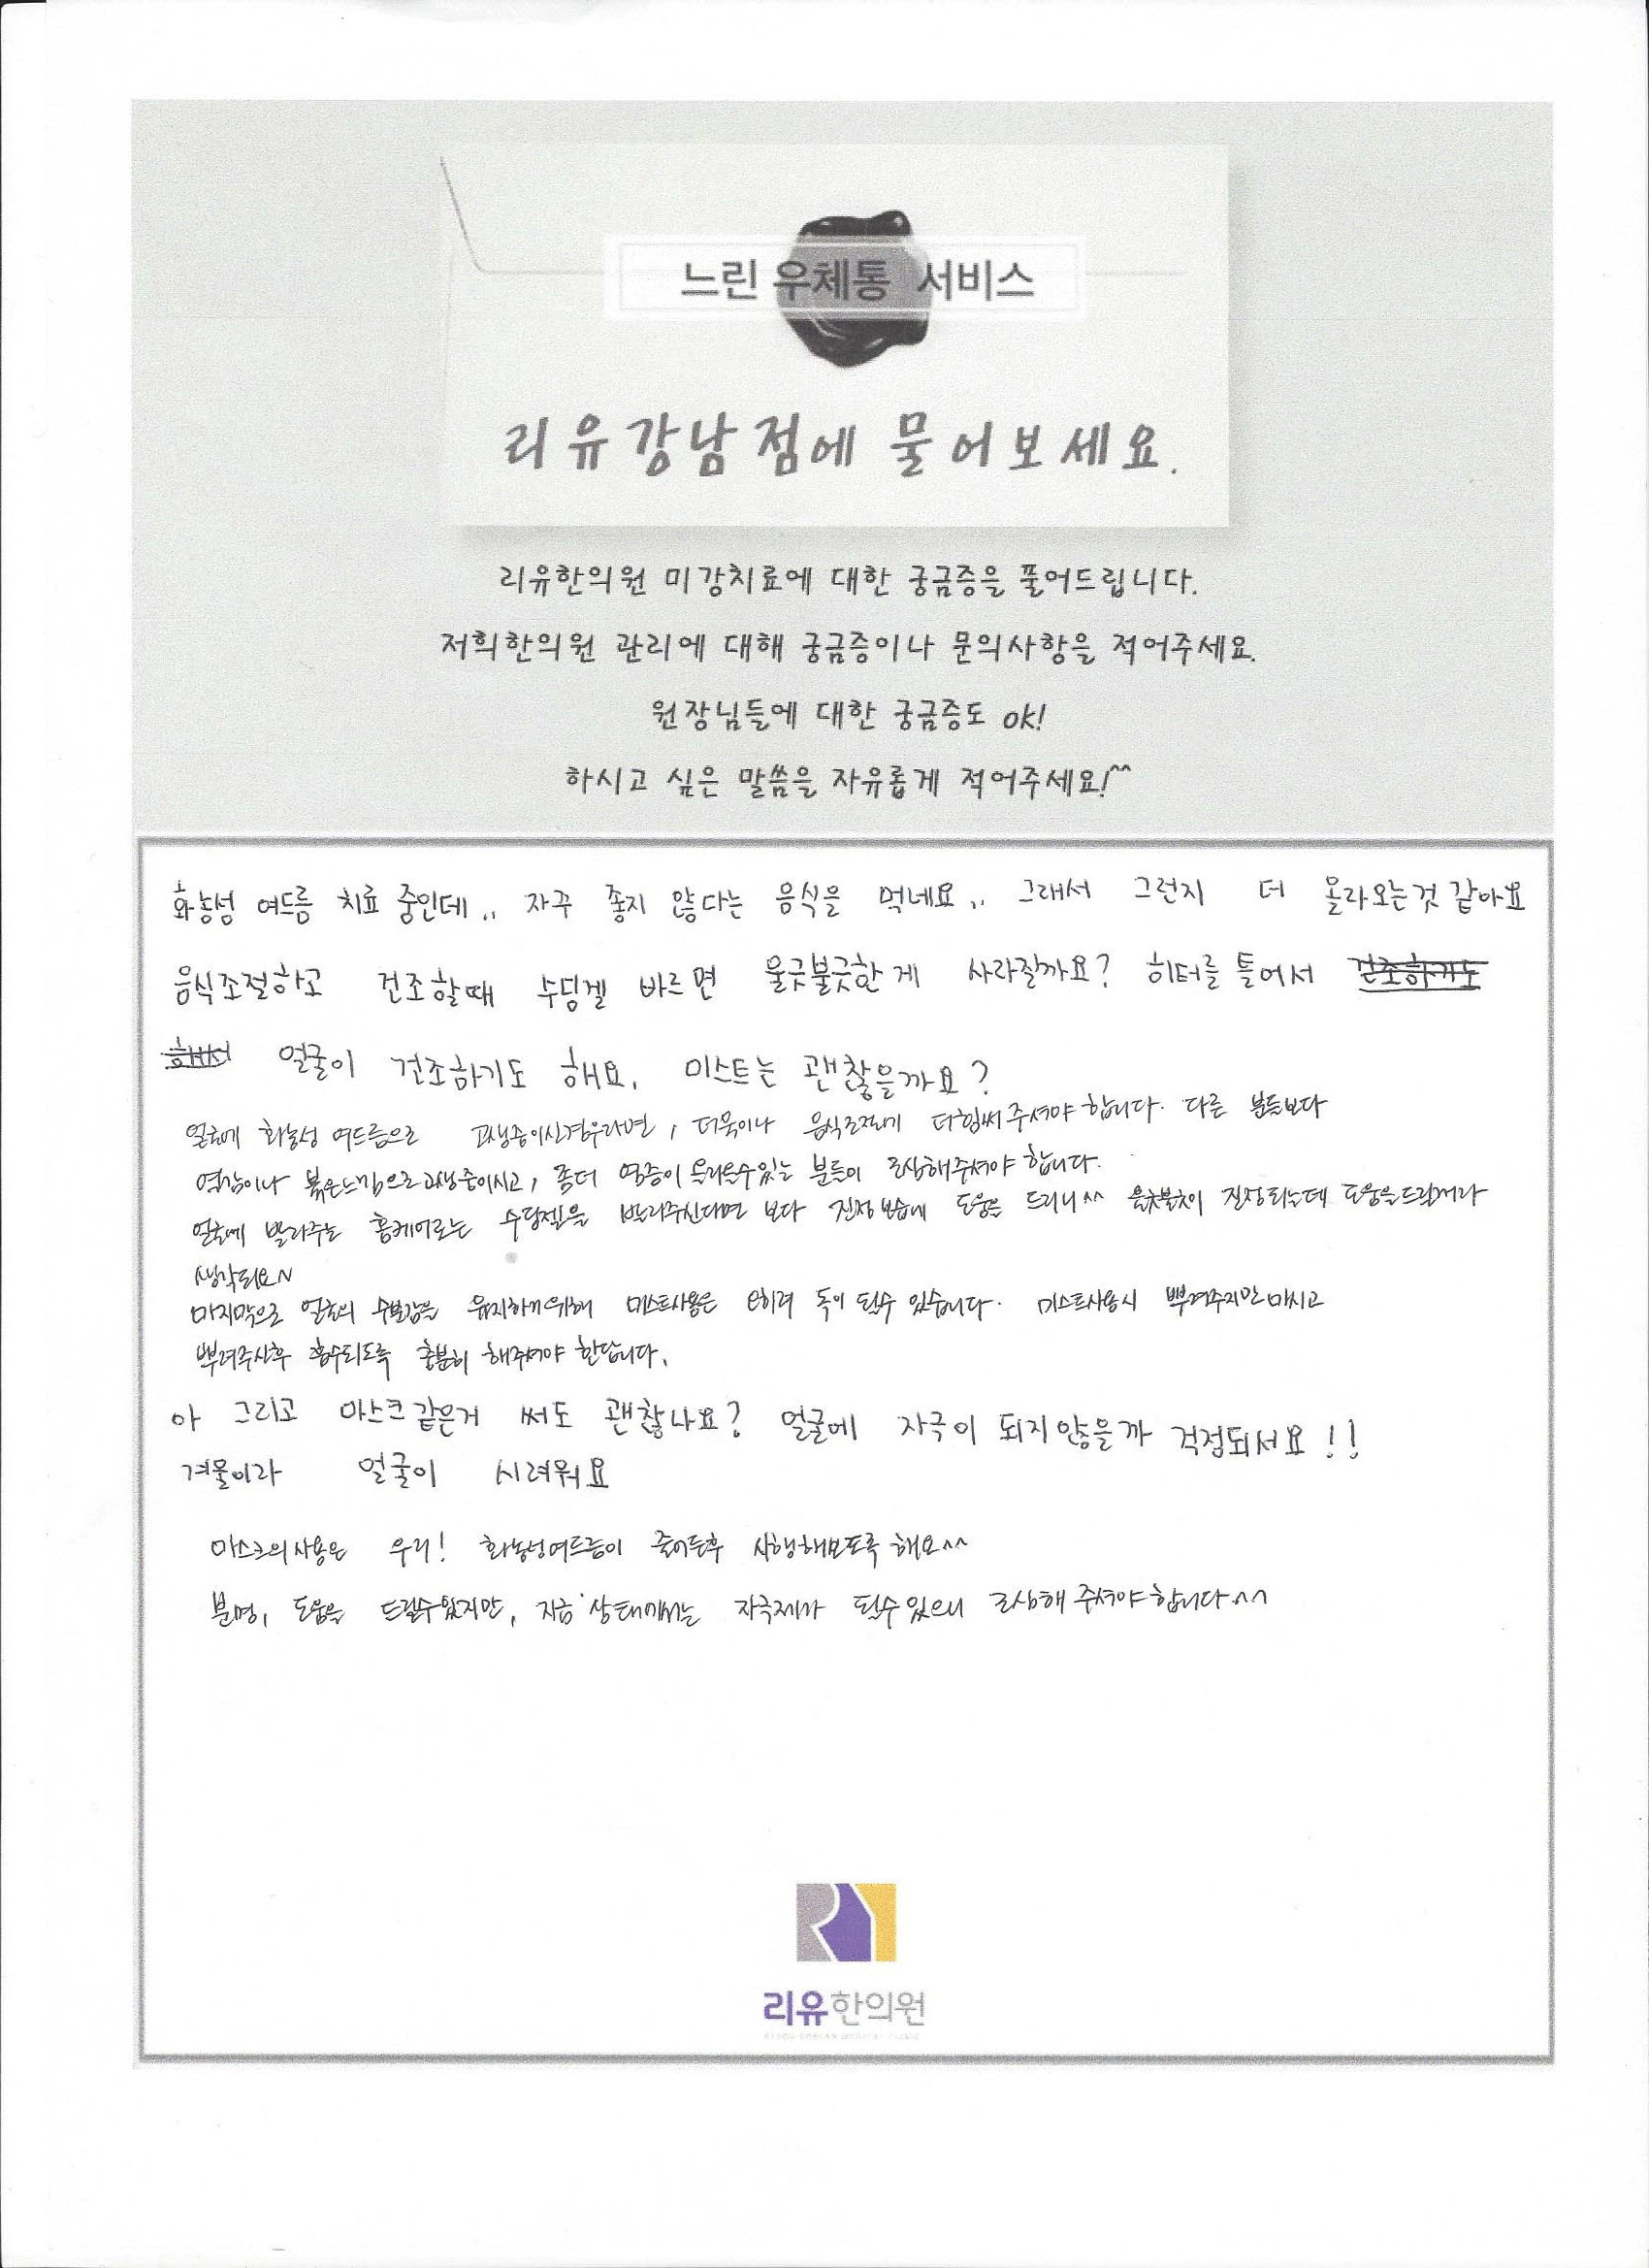 느린 우체통 서비스
리유강남점에 물어보세요.
리유한의원 미강치료에 대한 궁금증을 풀어드립니다.
저희한의원 관리에 대해 궁금증이나 문의사항을 적어주세요.
원장님들에 대한 궁금증도 ok!
하시고 싶은 말씀을 자유롭게 적어주세요!^^
화농성 여드름 치료 중인데.. 자꾸 좋지 않다는 음식을 먹네요.. 그래서 그런지 더 올라오는것 같아요
음식조절하고 건조할때 수딩겔 바르면 울긋불긋한 게 사라질까요? 히터를 틀어서 건조하기도
얼굴이 건조하기도 해요. 미스트는 괜찮을까요?
얼굴에 화농성 여드름으로 고생중이신경우라면, 더욱이나 음식조절에 더힘써주셔야합니다. 다른 분들보다
열감이나 붉은느낌으로고생중이시고, 좀더 염증이 올라올수있는 분들이 조심해주셔야 합니다.
얼굴에 발라주는 홈케어로는 수딩젤을 발라주신다면 보다 진정 보습에 도움을 드리니^^ 울긋불긋이 진정되는데 도움을드릴거라
생각되요~
마지막으로 얼굴의 수분감을 유지하기위해 미스트사용은 오히려 독이 될수 있습니다. 미스트사용시 뿌려주지만마시고
뿌려주신후 흡수되도록 충분히 해주셔야 한답니다.
아 그리고 마스크같은거 써도 괜찮나요? 얼굴에 자극이 되지않을까 걱정되서요!!
겨울이라 얼굴이 시려워요
마스크의사용은 우리! 화농성여드름이 줄어든후 시행해보도록 해요^^
분명, 도움을 드릴수있지만, 지금 상태에서는 자극제가 될수있으니 조심해주셔야합니다^^
리유한의원